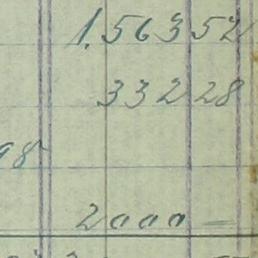 1.563 52
332 28
98
2000 —